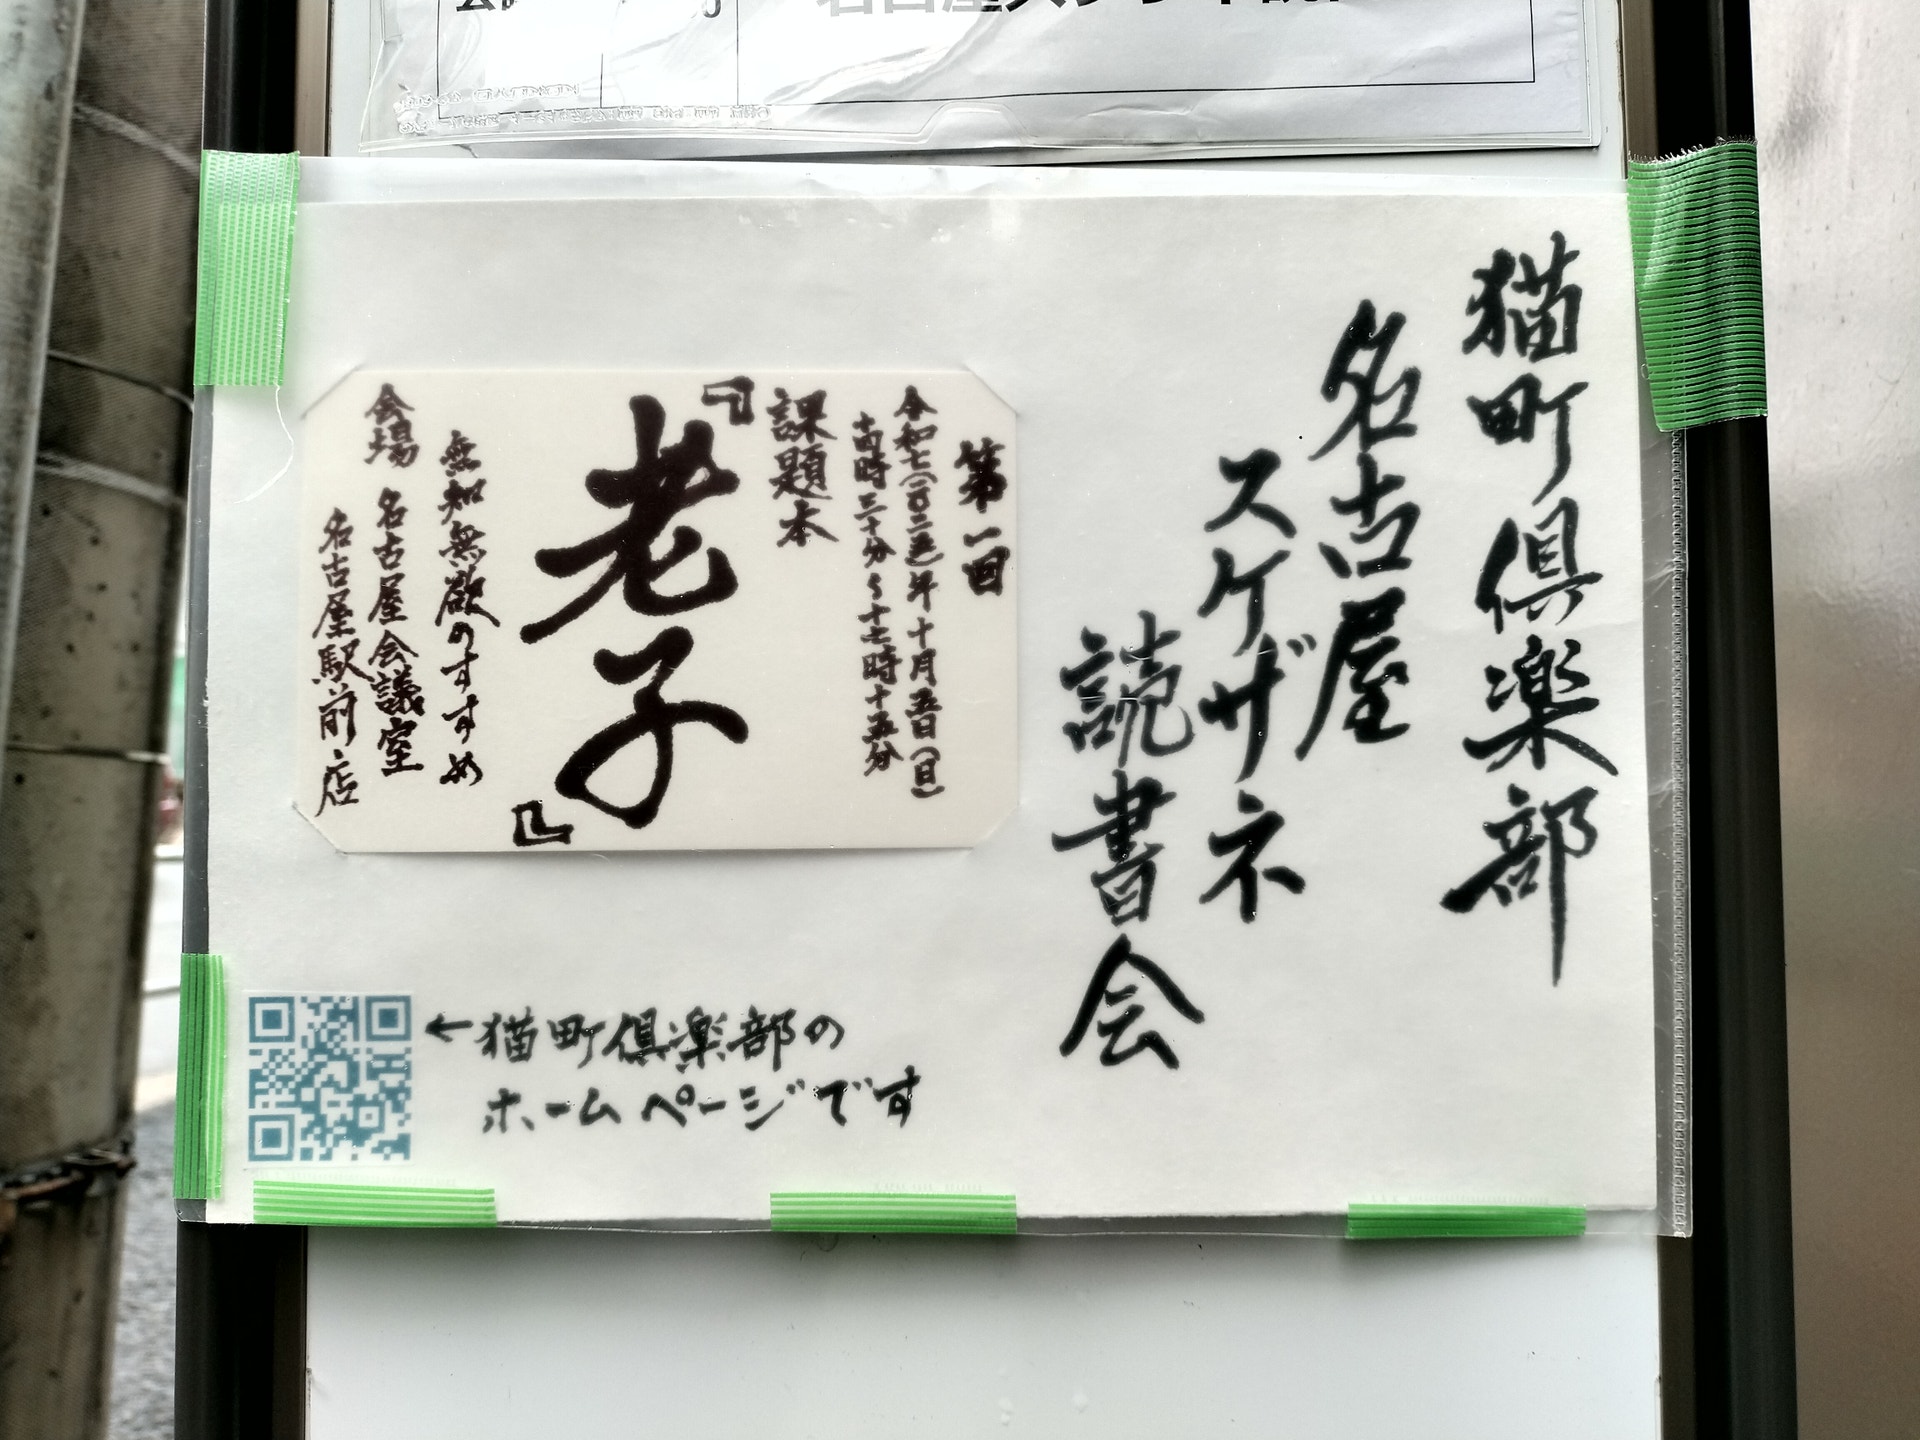 猫町倶楽部
名古屋
スケザネ
読書会
第一回
令和七(二〇二五)年十月五日(日)
十四時三十分〜十七時十五分
課題本
『老子』
無知無欲のすすめ
会場 名古屋会議室
名古屋駅前店
←猫町倶楽部の
ホームページです